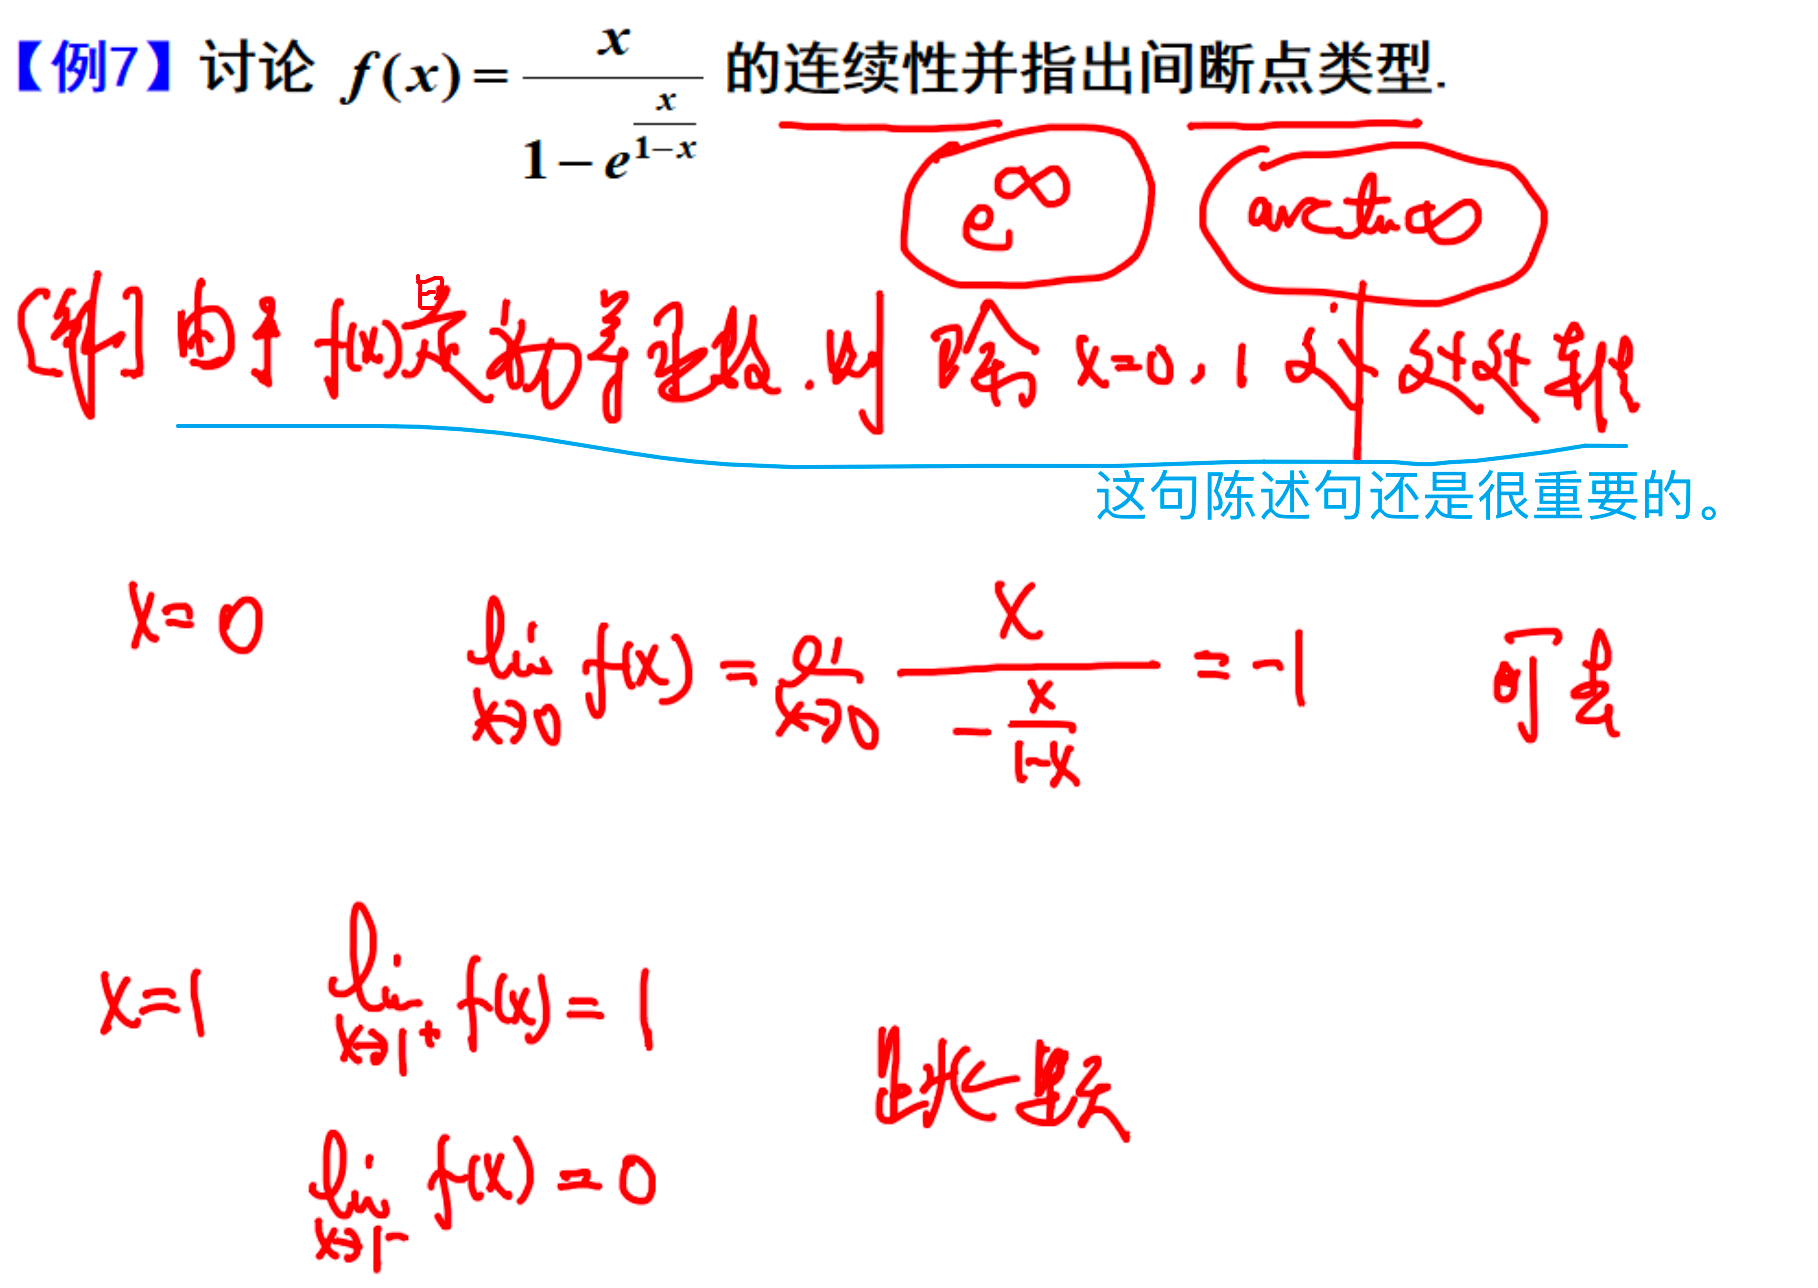 【例7】讨论 f(x) = x / (1 − e^{x/(1−x)}) 的连续性并指出间断点类型.
e^∞ arctan ∞
[解] 由于 f(x) 是初等函数. 则 除 x=0, 1 外 处处连续
这句陈述句还是很重要的。
x=0 lim_{x→0} f(x) = lim_{x→0} x / (−x/(1−x)) = −1 可去
x=1 lim_{x→1⁺} f(x) = 1
跳跃
lim_{x→1⁻} f(x) = 0